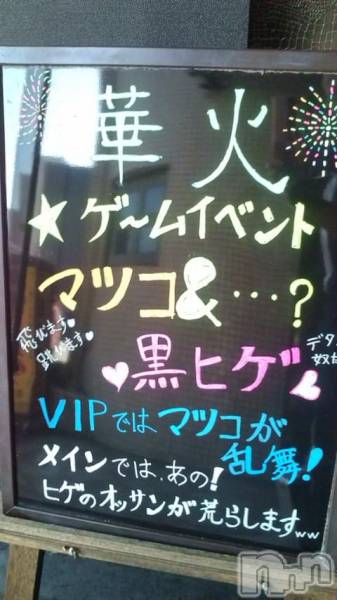 華火
★ゲームイベント
マツコ&…?
飛びます♥
跳びます♥
♥黒ヒゲ♥
デタ
VIPではマツコが
乱舞!
メインでは、あの!
ヒゲのオッサンが荒らしますww